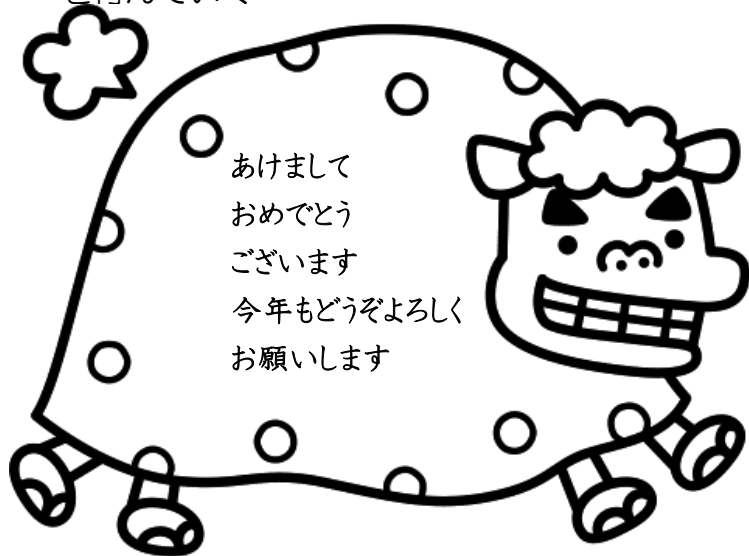 あけまして
おめでとう
ございます
今年もどうぞよろしく
お願いします